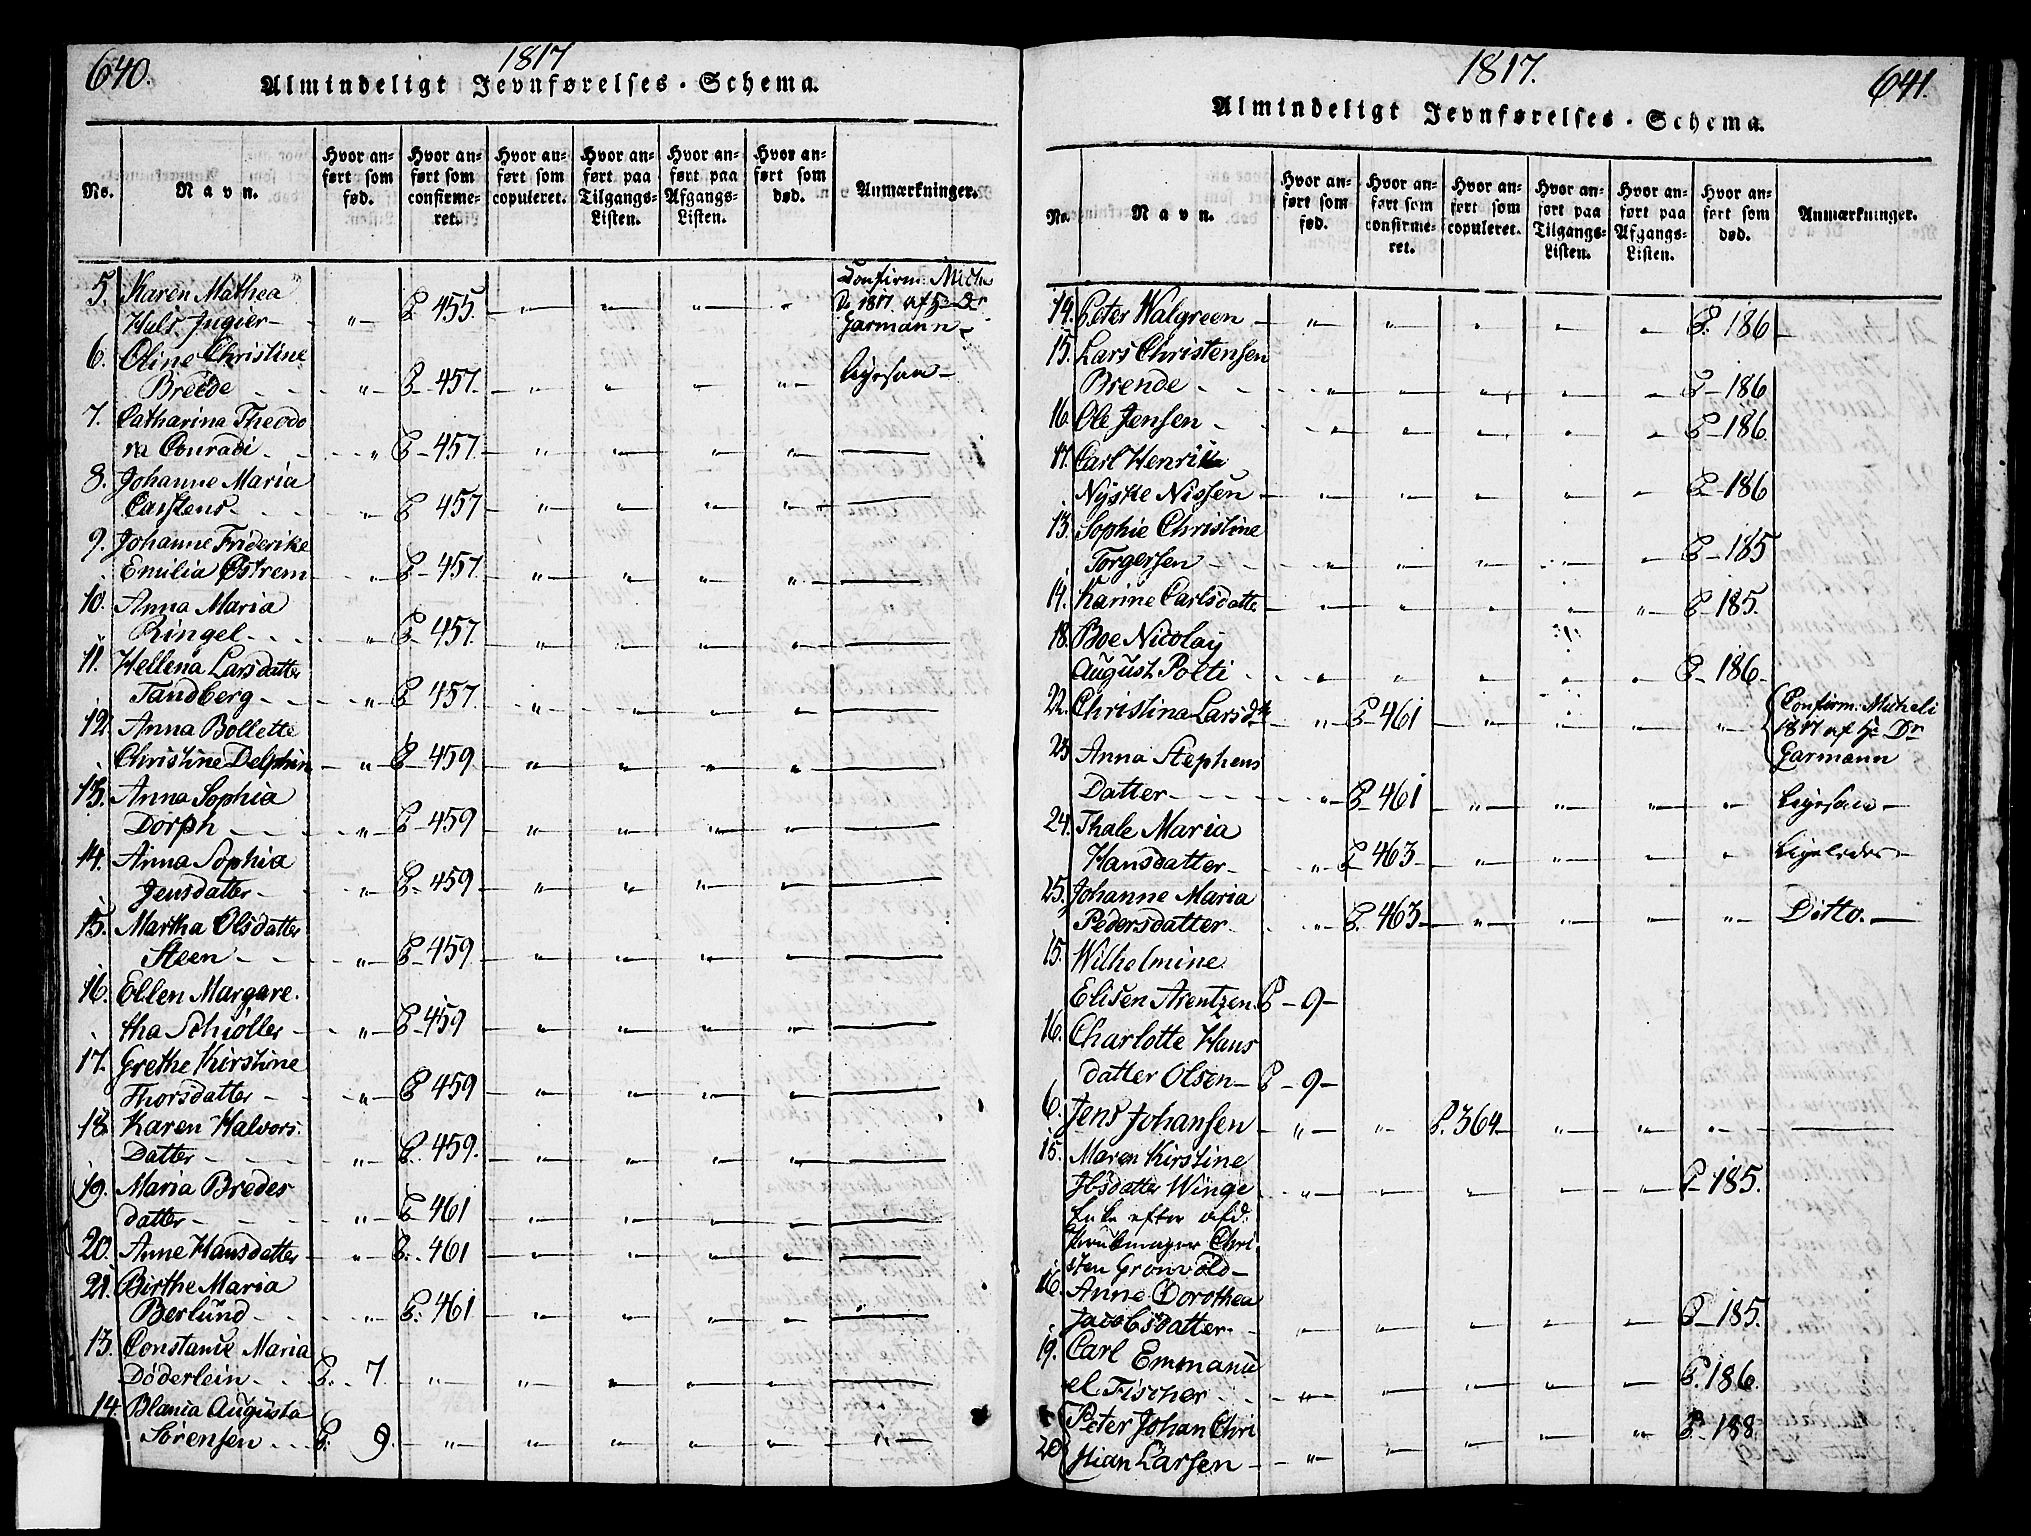 640.
1817
Almindeligt Jevnførelses-Schema.
No.
Navn.
Hvor anført som fød.
Hvor anført som confirmeret.
Hvor anført som copuleret.
Hvor anført paa Tilgangs-Listen.
Hvor anført paa Afgangs-Listen.
Hvor anført som død.
Anmærkninger.
5. Karen Mathea
Hals Jugier - " - P 455 - " - " - " - " Confirm: Mich: 1817 af Hr Dr Garmann -
6. Oline Christine
Breede - " - P - 457. - " - " - " - " - Ligesaa -
7. Catharina Theodo
ra Conradi - " P - 457. - " - " - " - " -
8. Johanne Maria
Carstens - " - P 457 - " - " - " - " -
9. Johanne Friderike
Emilia Østrem - " - P - 457. - " - " - " - " -
10. Anna Maria
Ringel - " - P - 457 - " - " - " - " -
11. Hellena Larsdatter
Tandberg - " - P 457. - " - " - " - " -
12. Anna Bollette
Christine Delphin - " - P - 459. - " - " - " - " -
13. Anna Sophia
Dorph - " - P - 459 - " - " - " - " -
14. Anna Sophia
Jensdatter - " - P - 459 - " - " - " - " -
15. Martha Olsdatter
Steen - " - P - 459. - " - " - " - " -
16. Ellen Margare-
tha Schiøller - " - P - 459 - " - " - " - " -
17. Grethe Kirstine
Thorsdatter - " - P 459 - " - " - " - " -
18. Karen Halvors-
Datter - " - P. 459. - " - " - " - " -
19. Maria Bredes
datter - " - P 461 - " - " - " - " -
20. Anne Hansdatter - " - P. 461 - " - " - " - " -
21. Birthe Maria
Berlund - " - P. 461 - " - " - " - " -
13. Constance Maria
Døderlein - P. 7. - " - " - " - " - " -
14. Blania Augusta
Sørensen - P. 9. - " - " - " - " - " - " -
1817.
641.
Almindeligt Jevnførelses-Schema.
No.
Navn.
Hvor anført som fød.
Hvor anført som confirmeret.
Hvor anført som copuleret.
Hvor anført paa Tilgangs-Listen.
Hvor anført paa Afgangs-Listen.
Hvor anført som død.
Anmærkninger.
14. Peter Walgreen - " - " - " - " - " - P. 186 -
15. Lars Christensen
Brende - " - " - " - " - " - P - 186
16. Ole Jensen - " - " - " - " - " - P - 186.
17. Carl Henrik
Nyske Nissen - " - " - " - " - " - P - 186
13. Sophie Christine
Torgersen - " - " - " - " - " - P - 185
14. Karine Carlsdatte - " - " - " - " - " - P 185.
18. Boe Nicolay
August Polti - " - " - " - " - " - P - 186 -
22. Christina Larsdtr - " - P - 461 - " - " - " - " - Confirm: Micheli 1817 af Hr Dr Garmann
23. Anna Stephens
Datter - " - P - 461 - " - " - " - " Ligesaa -
24. Thale Maria
Hansdatter - " - P 463 - " - " - " - " Ligeledes -
25. Johanne Maria
Pedersdatter - " - P. 463 - " - " - " - " - Ditto. -
15. Wilhelmine
Elisen Arentzen P - 9 -
16. Charlotte Hans
datter Olsen - P - 9 -
6. Jens Johansen - " - " - P. 364 - " - " - " -
15. Maren Kirstine
Ibsdatter Winge - " - " - " - " - " - P - 185.
Enke efter afd.
Chri-
sten Grønvold -
16. Anne Dorothea
Jacobsdatter - " - " - " - " - " - P - 185.
19. Carl Emmanu
el Fischer - " - " - " - " - " - P. 186.
20. Peter Johan Chri
stian Larsen - " - " - " - " - " - P - 188.